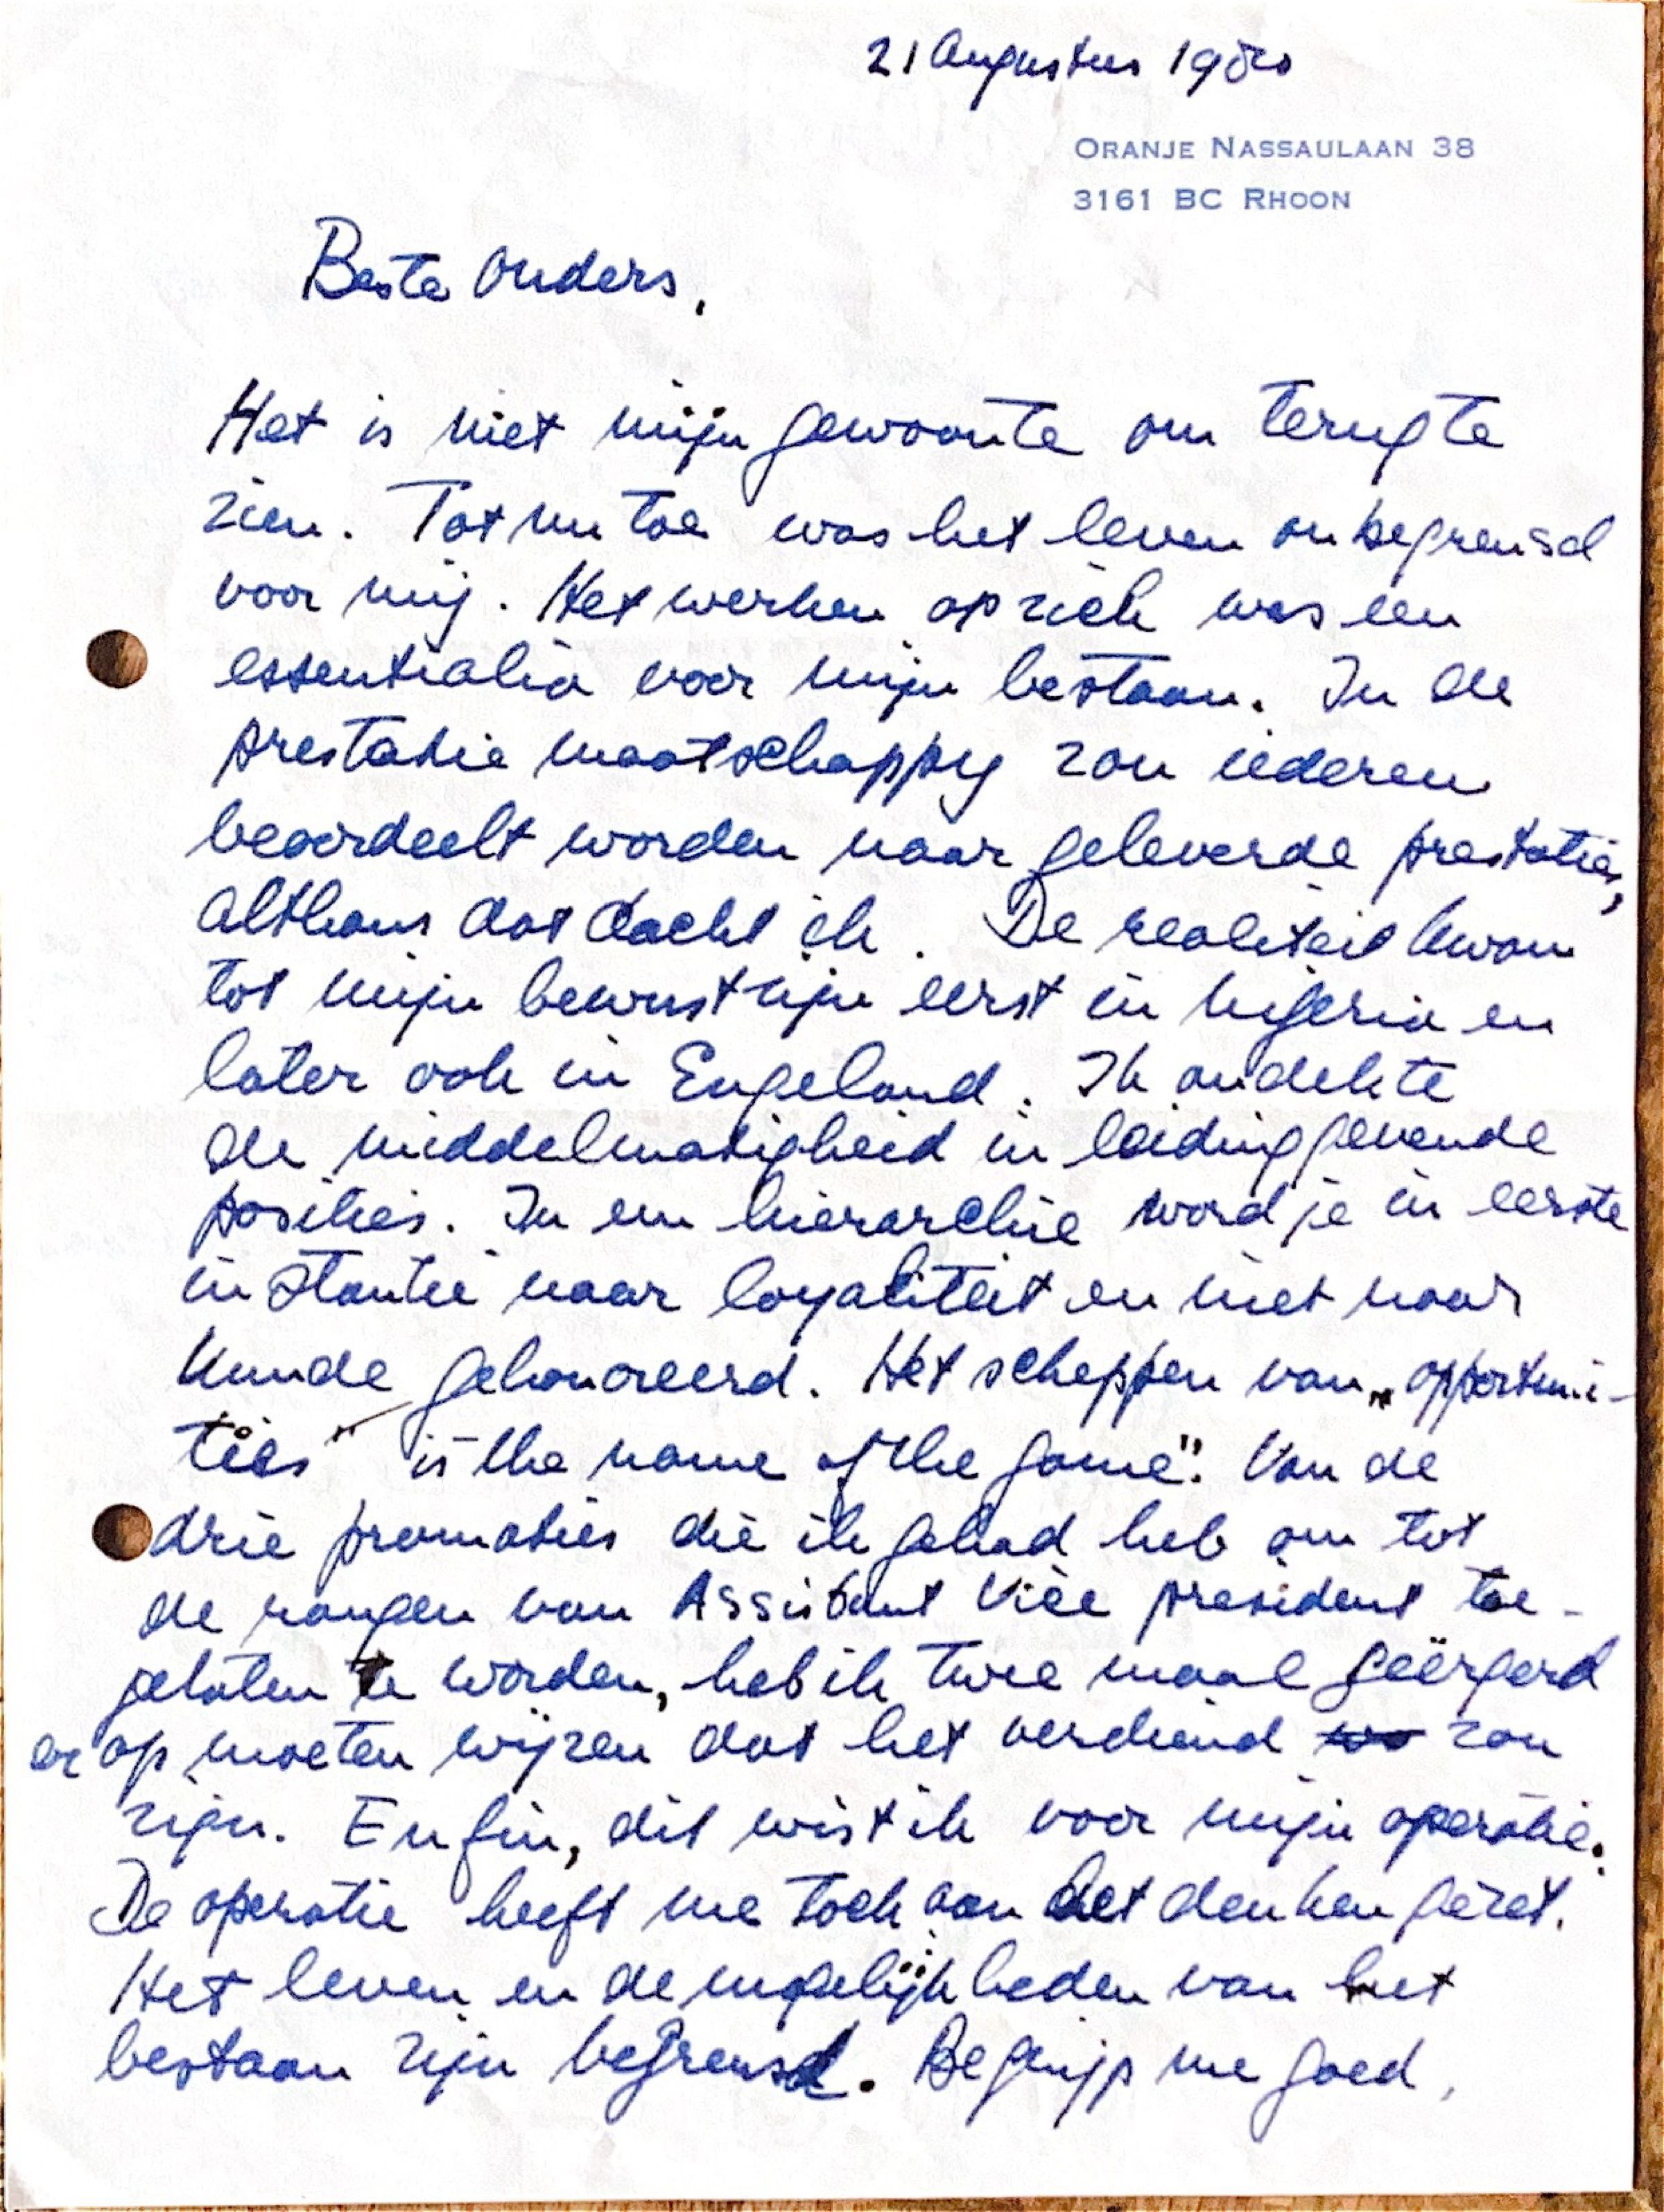 21 Augustus 1980
ORANJE NASSAULAAN 38
3161 BC RHOON
Beste Ouders,
Het is niet mijn gewoonte om terug te
zien. Tot nu toe was het leven onbegrensd
voor mij. Het werken op zich was een
essentialia voor mijn bestaan. In de
prestatie maatschappy zou iedereen
beoordeelt worden naar geleverde prestaties,
althans dat dacht ik. De realiteit kwam
tot mijn bewustzijn eerst in Nigeria en
later ook in Engeland. Ik ondekte
de middelmatigheid in leidinggevende
posities. In een hierarchie word je in eerste
instantie naar loyaliteit en niet naar
kunde gehonoreerd. Het scheppen van „opportuni-
ties" is "the name of the game". Van de
drie promoties die ik gehad heb om tot
de rangen van Assistant Vice president toe-
gelaten te worden, heb ik twee maal geërgerd
er op moeten wijzen dat het verdiend zou
zijn. Enfin, dit wist ik voor mijn operatie.
De operatie heeft me toch aan het denken gezet.
Het leven en de mogelijkheden van het
bestaan zijn begrensd. Begrijp me goed,